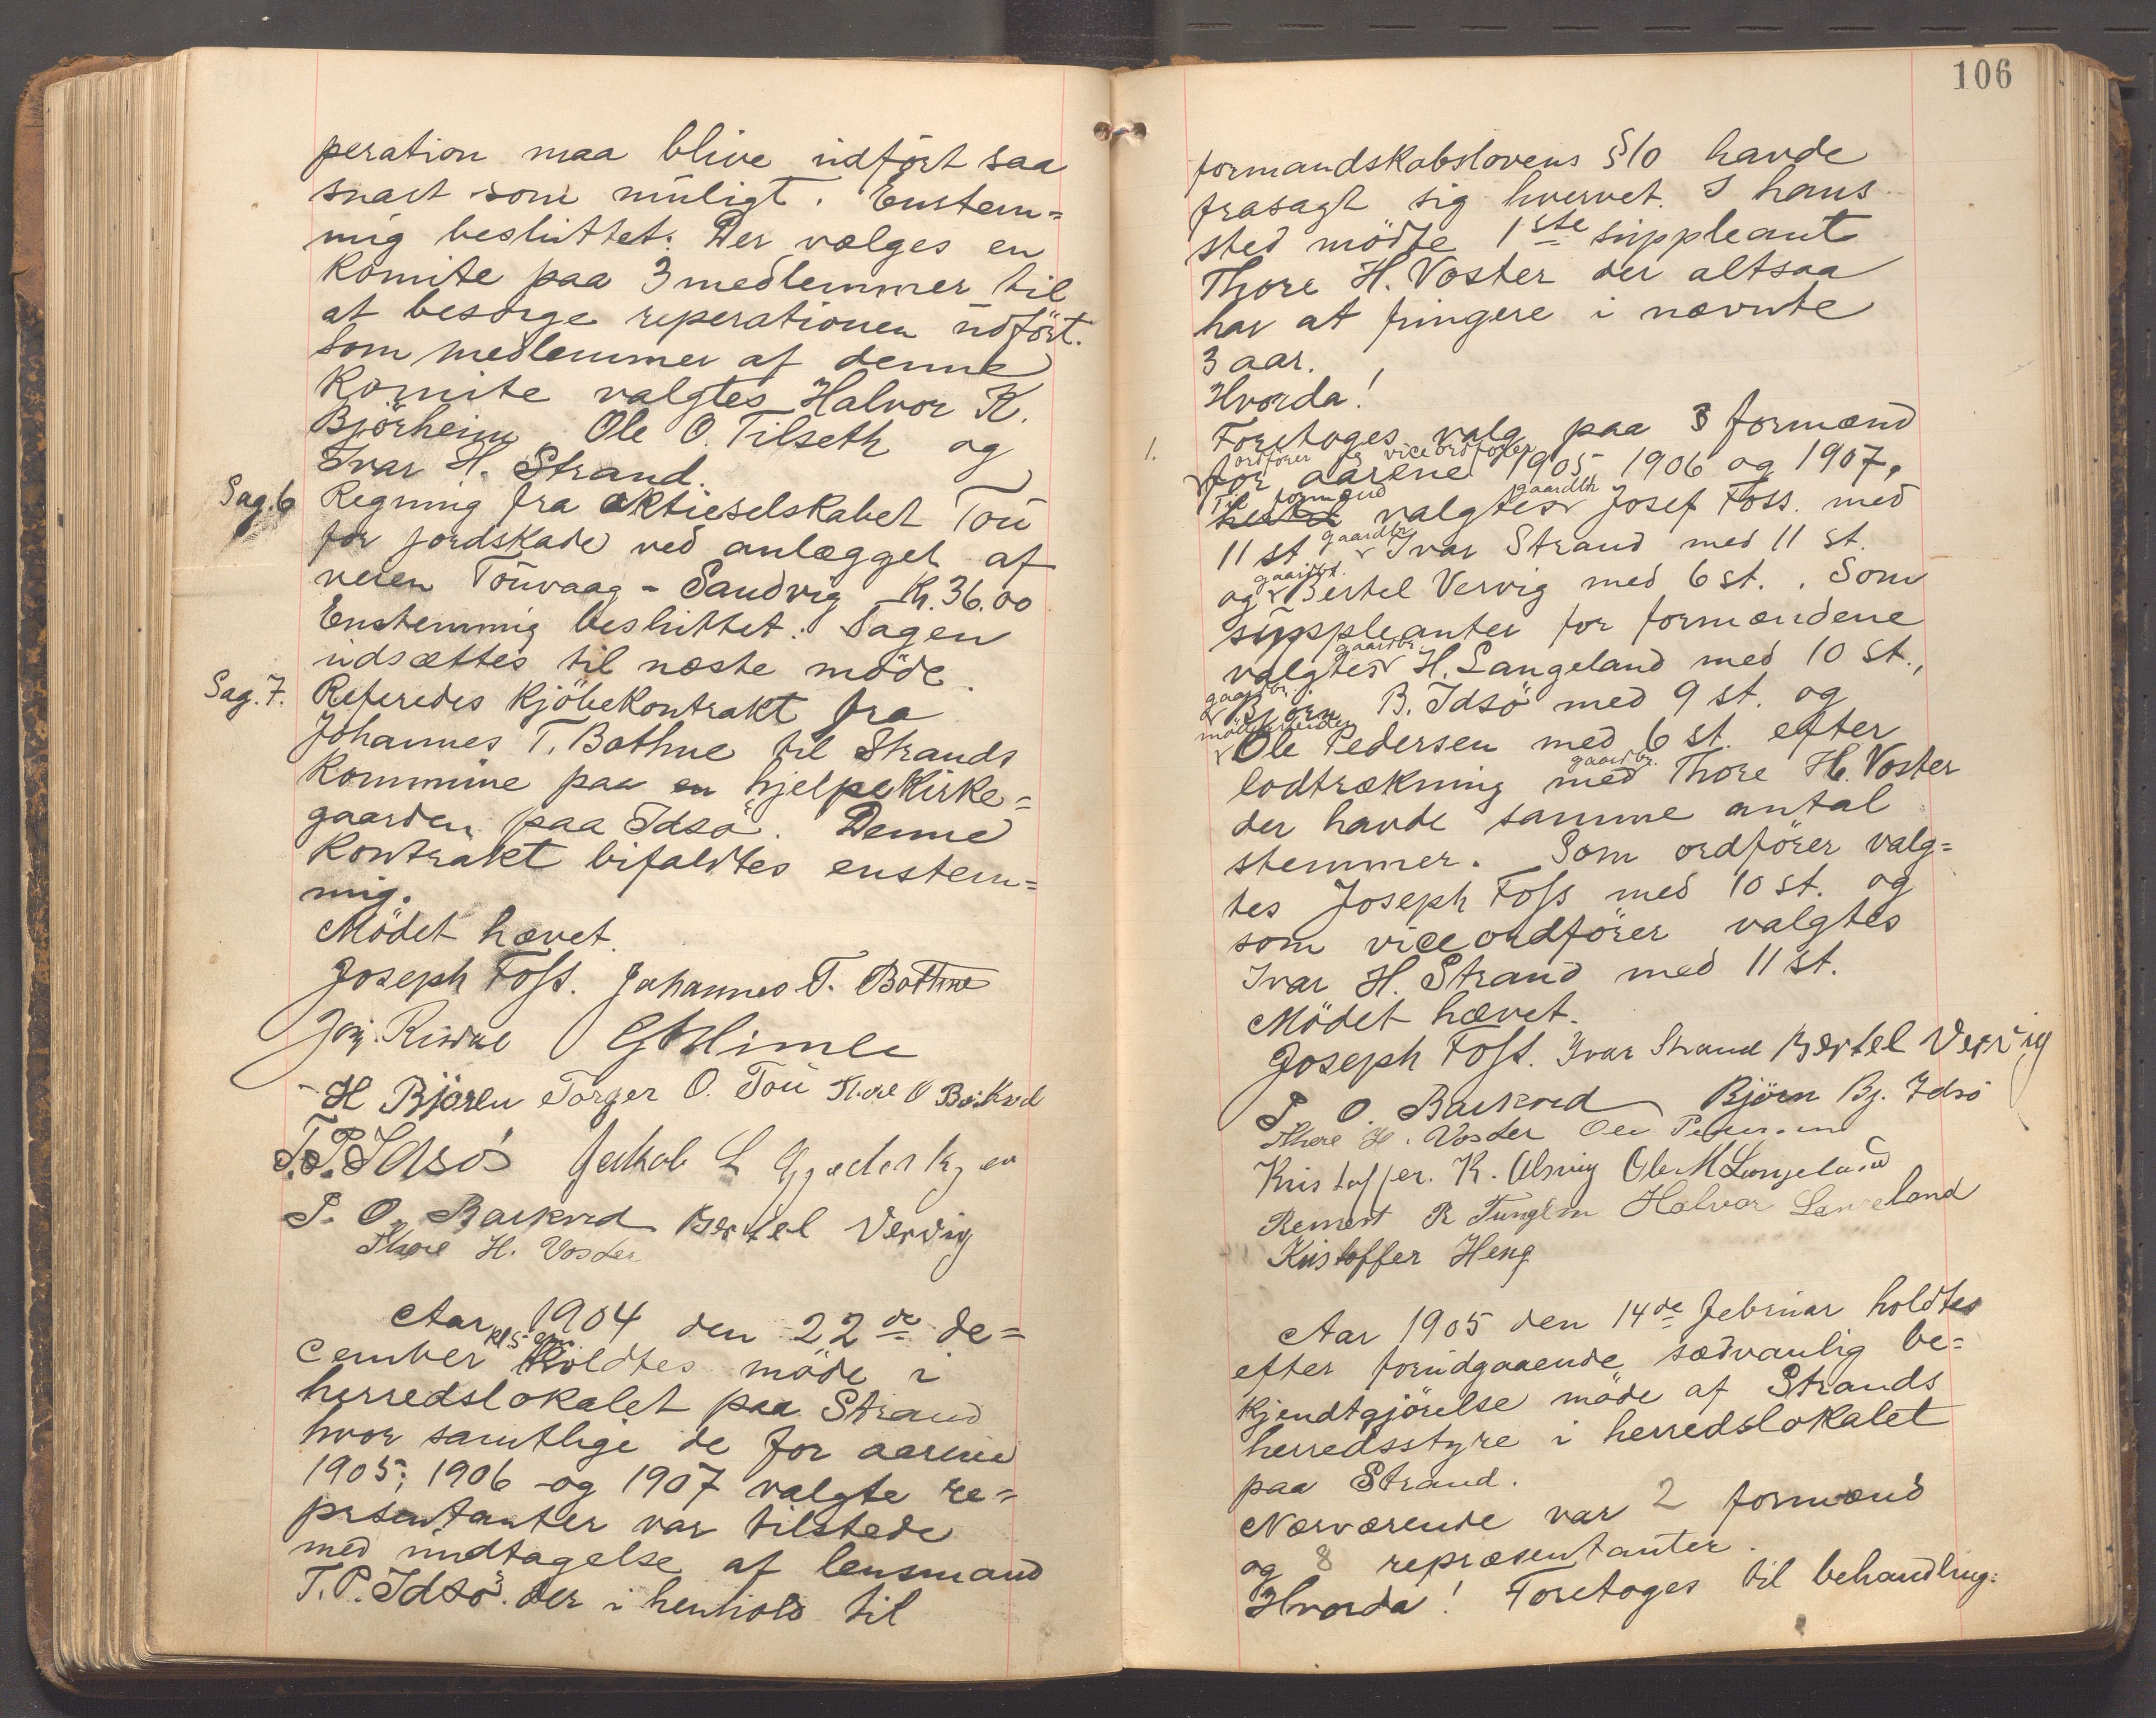 peration maa blive udført saa
snart som muligt. Enstem=
mig besluttet: Der vælges en
Komite paa 3 medlemmer til
at besørge reperationen udført.
Som medlemmer af denne
Komite valgtes Halvor K.
Bjørheim, Ole O. Tilseth og
Ivar H. Strand.
Sag. 6 Regning fra aktieselskabet Tou
for jordskade ved anlægget af
veien Touvaag - Sandvig Kr. 36.00
Enstemmig besluttet: Sagen
udsættes til næste møde.
Sag. 7. Referedes Kjøbekontrakt fra
Johannes T. Bothne til Strands
Kommune paa en hjelpekirke=
gaarden paa Idsø. Denne
Kontrakt bifaldtes enstem=
mig.
Mødet hævet.
Joseph Foss. Johannes T. Bothne
H Bjøren Torger O. Tou Thore O Barkved
T. P. Idsø Jakob L
P. O. Barkved Bertel Vervig
Thore H. Voster
Aar 1904 den 22de de=
kl. 5 em.
cember holdtes møde i
herredslokalet paa Strand
hvor samtlige de for aarene
1905, 1906 og 1907 valgte re=
prsentanter var tilstede
med undtagelse af lensmand
T. P. Idsø der i henhold til
106
formandskabslovens § 10 havde
frasagt sig hvervet. I hans
sted mødte 1ste suppleant
Thore H. Voster der altsaa
har at fungere i nævnte
3 aar.
Hvorda!
1. Foretoges valg paa 3 formænd
ordfører og viceordfører
for aarene 1905, 1906 og 1907,
Til formænd gaardbr.
valgtes Josef Foss. med
gaardbr.
11 st Ivar Strand med 11 st.
gaardbr.
og Bertel Vervig med 6 st. . Som
suppleanter for formændene
gaardbr.
valgtes H. Langeland med 10 st.,
gaardbr.
Bjørn B. Idsø med 9 st. og
Ole Pedersen med 6 st. efter
gaardbr.
lodtrækning med Thore H. Voster
der havde samme antal
stemmer. Som ordfører valg=
tes Joseph Foss med 10 st. og
som viceordfører valgtes
Ivar H. Strand med 11 st.
Mødet hævet.
Joseph Foss. Ivar Strand Bertel Vervig
P. O. Barkved Bjørn Bj. Idsø
Thore H. Voster Ole Pedersen
Kristoffer. K. Alsvig Ole M Langeland
R Tungland Halvor Langeland
Kristoffer Heng
Aar 1905 den 14de februar holdtes
efter forudgaaende sædvanlig be=
kjendtgjørelse møde af Strands
herredsstyre i herredslokalet
paa Strand.
Nærværende var 2 formænd
og 8 repræsentanter.
Hvorda! Foretoges til behandling: